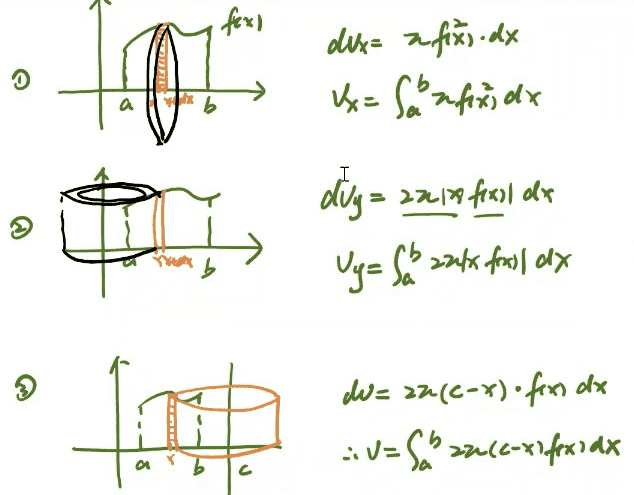 ①
f(x)
a
x
x+dx
b
dVx = πf²(x)·dx
Vx = ∫ₐᵇ πf²(x) dx
②
a
x
x+dx
b
dVy = 2π|x| |f(x)| dx
Vy = ∫ₐᵇ 2π|x f(x)| dx
③
a
x
b
c
dV = 2π(c-x)·f(x) dx
∴ V = ∫ₐᵇ 2π(c-x) f(x) dx